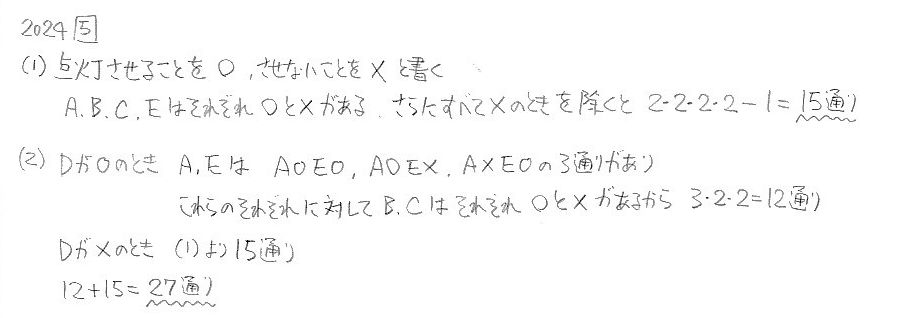 2024 5
(1) 点灯させることを○,させないことを×と書く
A.B.C.Eはそれぞれ○と×がある.さらにすべて×のときを除くと 2・2・2・2-1=15通り
(2) Dが○のとき A,Eは A○E○, A○E×, A×E○の3通りがあり
これらのそれぞれに対してB.Cはそれぞれ○と×があるから 3・2・2=12通り
Dが×のとき (1)より15通り
12+15=27通り